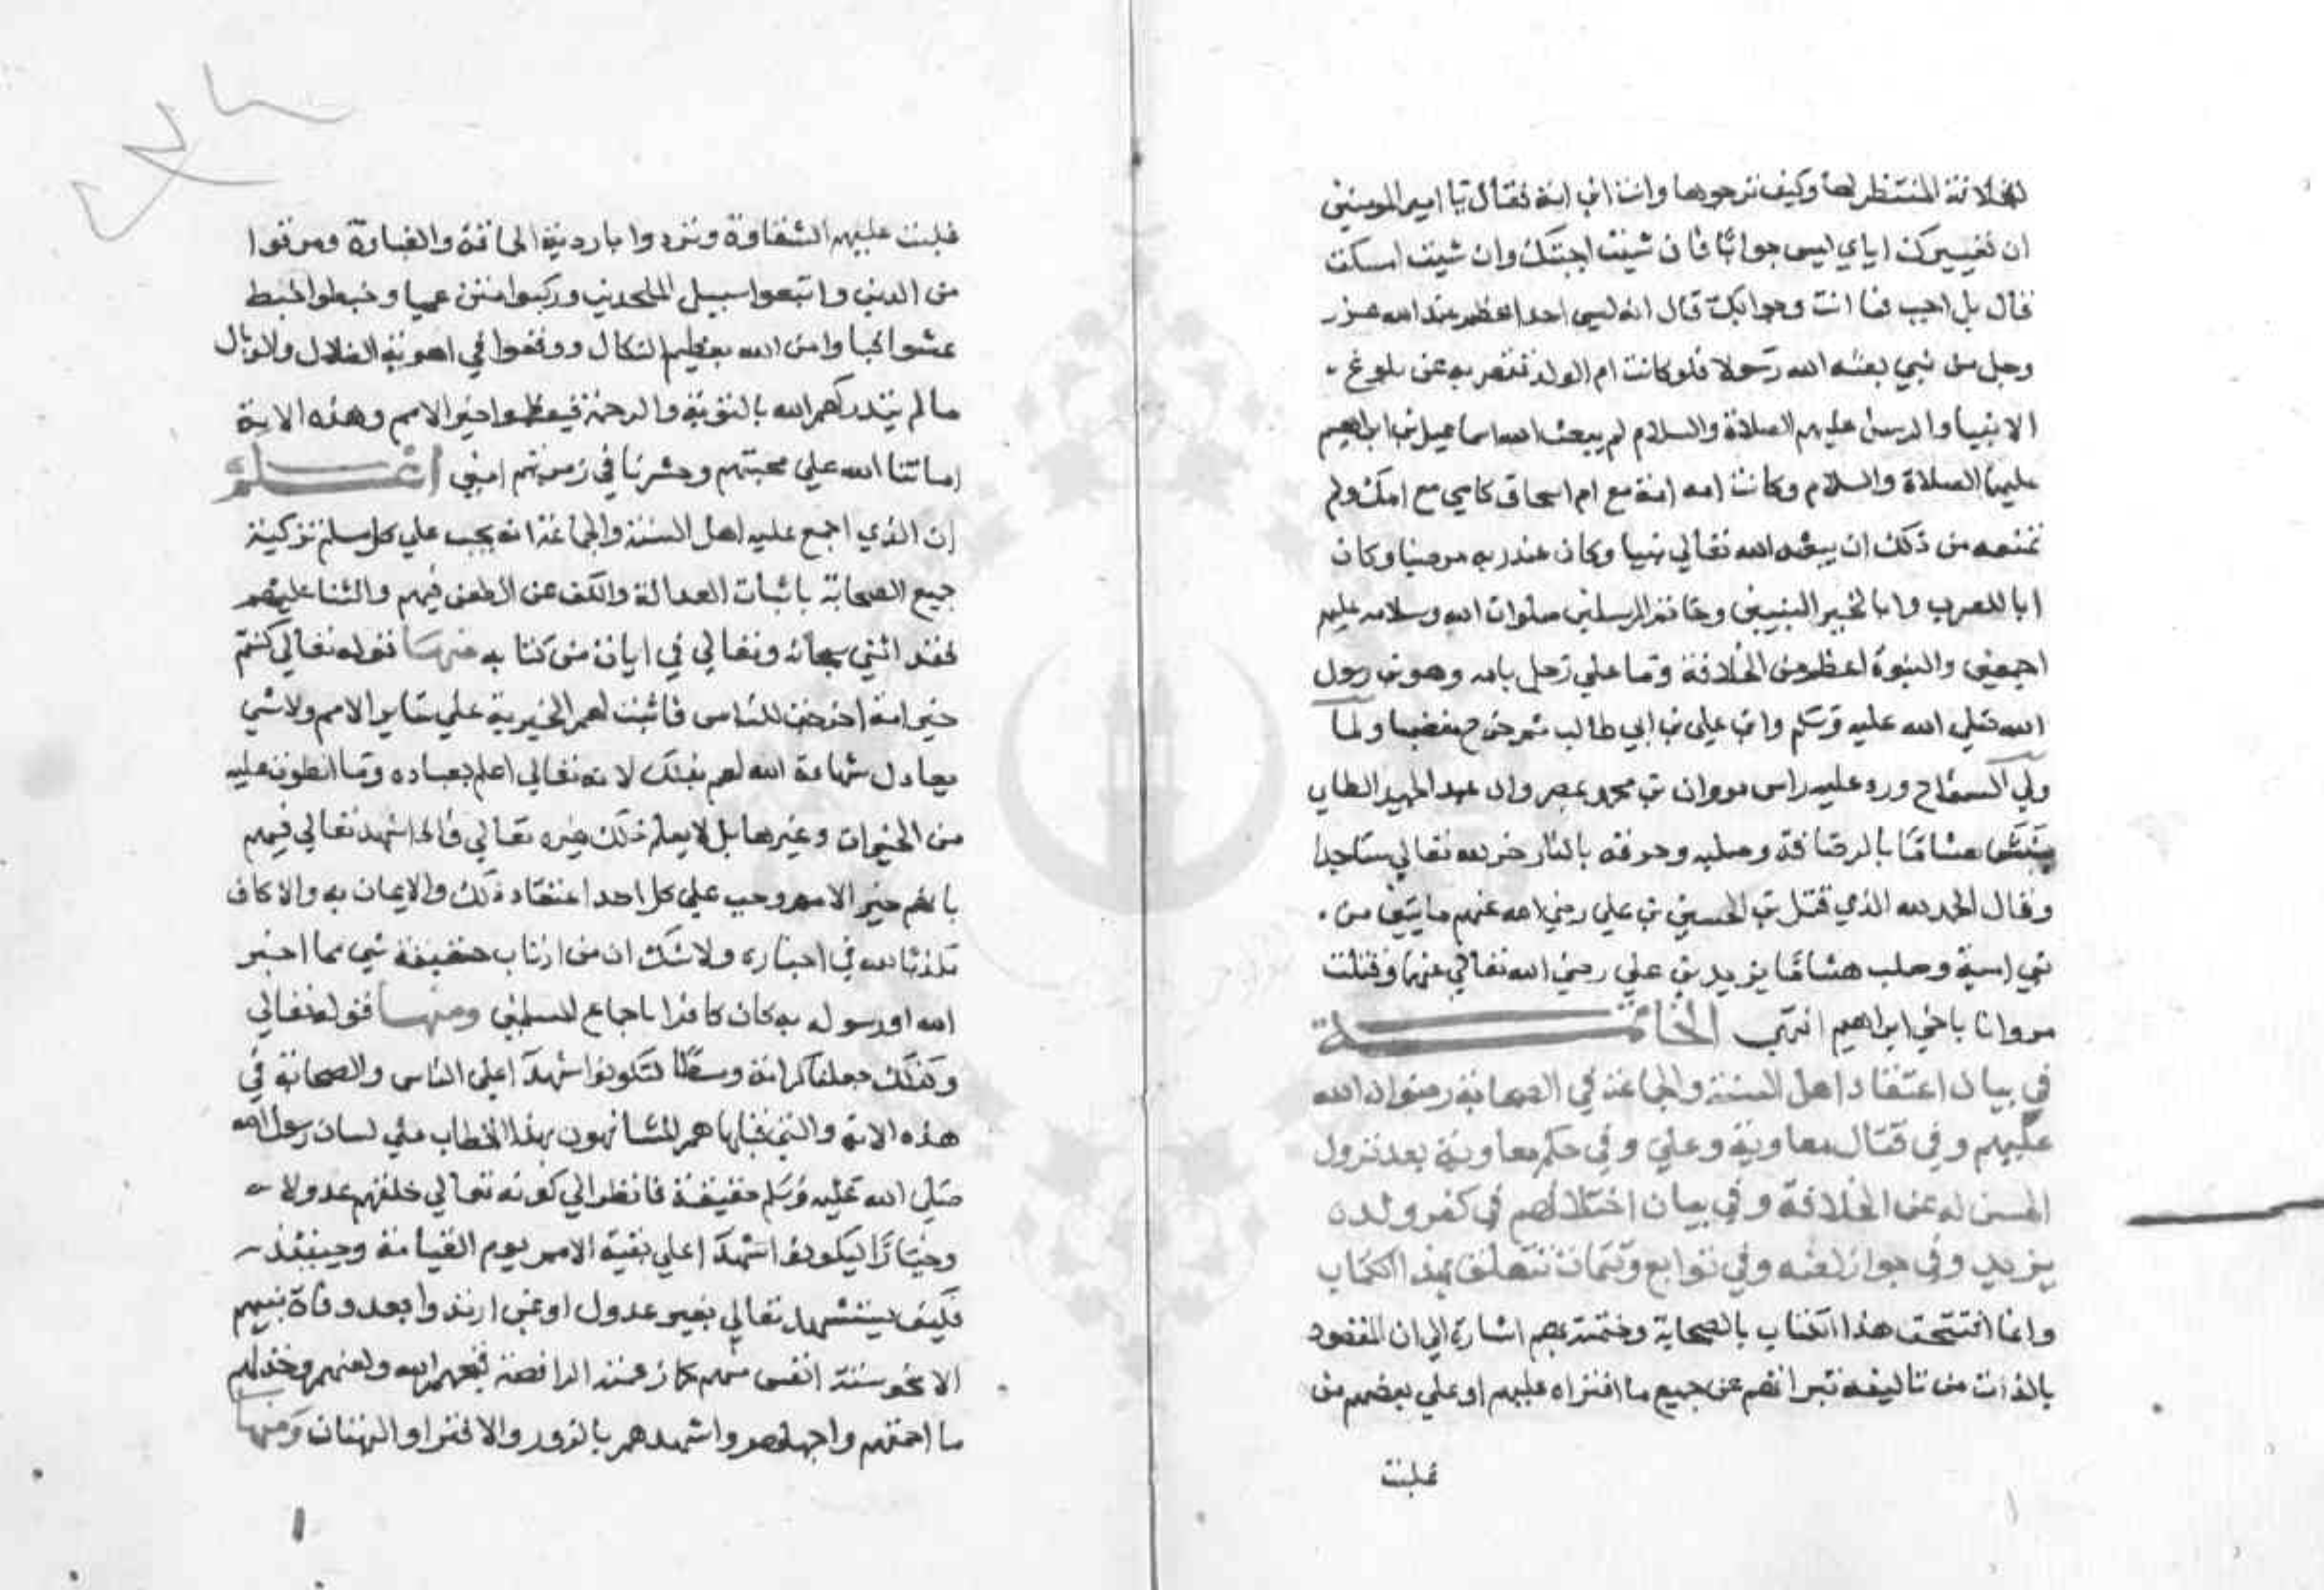 للخلافة المنتظر لها وكيف ترجوها وانت ابن امة فقال يا امير المومنين
ان تعييرك اياي ليس جوابا فان شيت اجبتك وان شيت امسكت
فقال بل اجب فما انت وجوابك قال انه ليس احد اعظم عند الله عز
وجل من نبي بعثه الله رسولا فلو كانت ام الولد تقصر به عن بلوغ
الانبيا والرسل عليهم الصلاة والسلام لم يبعث الله اسماعيل بن ابراهيم
عليهما الصلاة والسلام وكانت امه امة مع ام اسحاق كامي مع امك ولم
تمنعه من ذلك ان يبعثه الله تعالي نبيا وكان عند ربه مرضيا وكان
ابا للعرب وابا لخير النبيين وخاتم المرسلين صلوات الله وسلامه عليهم
اجمعين والنبوة اعظم من الخلافة وما علي رجل بامه وهو بن رسول
الله صلي الله عليه وسلم وابن علي بن ابي طالب ثم خرج مغضبا ولما
ولي السفاح ورد عليه راس مروان بن محمد بمصر وان عبد الحميد الطاي
نبش هشاما بالرصافة وصلبه وحرقه بالنار خر لله تعالي ساجدا
وقال الحمد لله الذي قتلت بالحسين بن علي رضي الله عنهم مايتين من
بني امية وصلبت هشاما بزيد بن علي رضي الله تعالي عنهما وقتلت
مروانا باخي ابراهيم انتهي الخاتمة
في بيان اعتقاد اهل السنة والجماعة في الصحابة رضوان الله
عليهم وفي قتال معاوية وعلي وفي حكم معاوية بعد نزول
الحسن له عن الخلافة وفي بيان اختلافهم في كفر ولده
يزيد وفي جواز لعنه وفي توابع وتتمات تتعلق بهذا الكتاب
وانما افتتحت هذا الكتاب بالصحابة وختمته بهم اشارة الي ان المقصود
بالذات من تاليفه تبراتهم عن جميع ما افتراه عليهم او علي بعضهم من
غلبت
غلبت عليهم الشقاوة وتردوا باردية الحماقة والغباوة ومرقوا
من الدين واتبعوا سبيل الملحدين وركبوا متن عميا وخبطوا خبط
عشوا فباوا من الله بعظيم النكال ووقعوا في اهوية الضلال والوبال
ما لم يتداركهم الله بالتوبة والرحمة فيعظموا خير الامم وهذه الامة
اماتنا الله علي محبتهم وحشرنا في زمرتهم امين اعلم
ان الذي اجمع عليه اهل السنة والجماعة انه يجب علي كل مسلم تزكية
جميع الصحابة باثبات العدالة والكف عن الطعن فيهم والثنا عليهم
فقد اثني سبحانه وتعالي في ايات من كتابه منها قوله تعالي كنتم
خير امة اخرجت للناس فاثبت لهم الخيرية علي ساير الامم ولا شي
يعادل شهادة الله لهم بذلك لانه تعالي اعلم بعباده وما انطووا عليه
من الخيرات وغيرها بل لا يعلم ذلك غيره تعالي فاذا شهد تعالي فيهم
بانهم خير الامم وجب علي كل احد اعتقاد ذلك والايمان به والا كان
مكذبا لله في اخباره ولا شك ان من ارتاب في حقيقة شي مما اخبر
الله او رسوله به كان كافرا باجماع المسلمين ومنها قوله تعالي
وكذلك جعلناكم امة وسطا لتكونوا شهدا علي الناس والصحابة في
هذه الاية والتي قبلها هم المشافهون بهذا الخطاب علي لسان رسول الله
صلي الله عليه وسلم حقيقة فانظر الي كونه تعالي خلقهم عدولا
وخيارا ليكونوا شهدا علي بقية الامم يوم القيامة وحينئذ
فكيف يستشهد تعالي بغير عدول او بمن ارتدوا بعد وفاة نبيهم
الا نحو ستة انفس منهم كما زعمته الرافضة قبحهم الله ولعنهم وخذلهم
ما احمقهم واجهلهم واشهدهم بالزور والافترا والبهتان ومنها